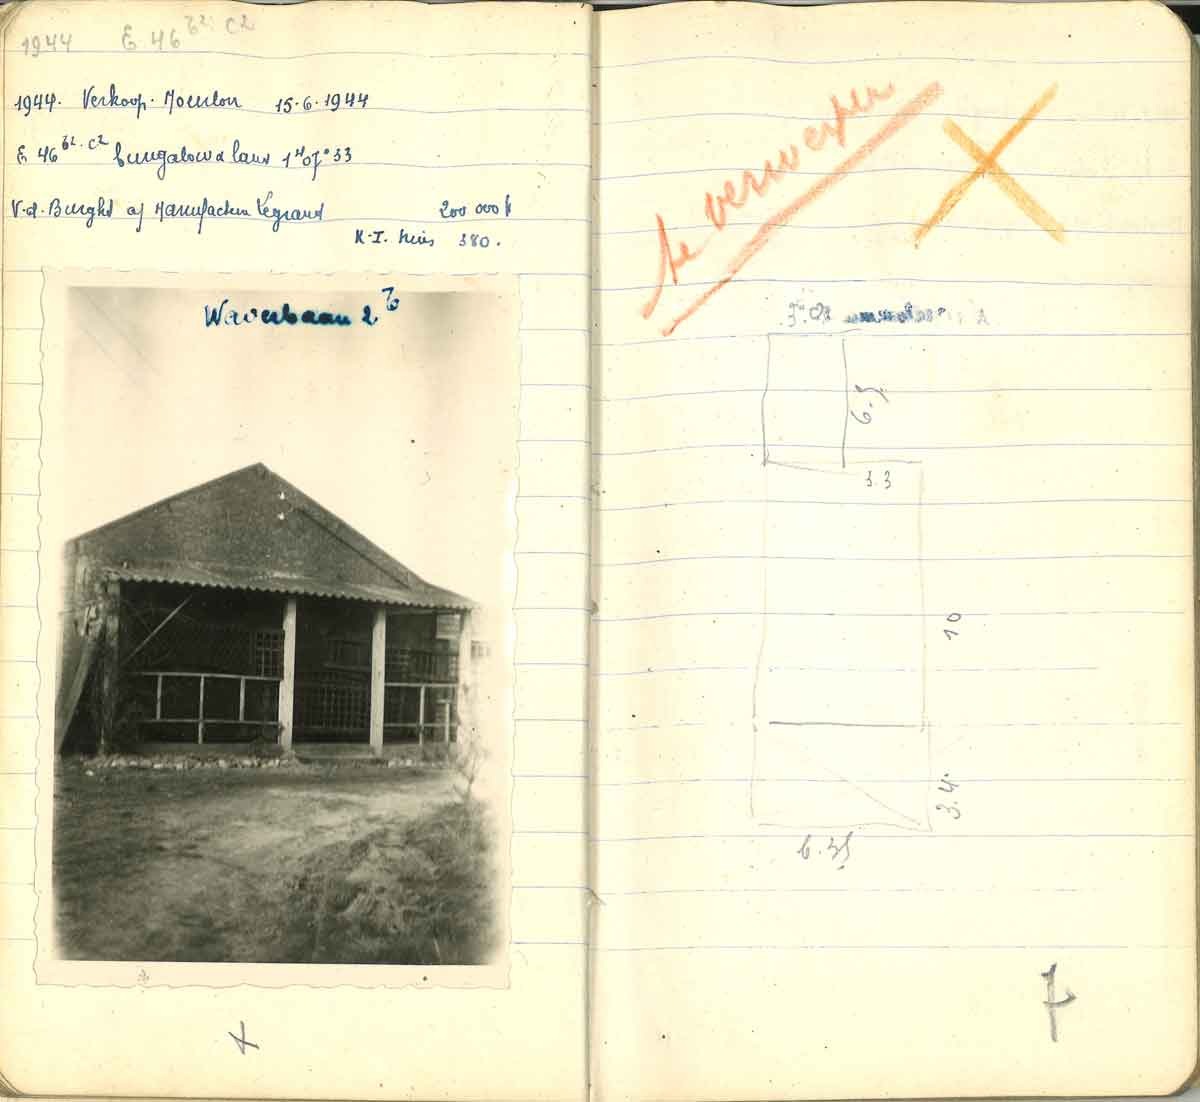 1944 E 46 b2. c2
1944. Verkoop. Moculon 15.6.1944
E 46 b2. c2 bungalow & land 33
V.d. Burght of Manufacture Legrand 200 000 f
K.I. huis 380.
Waverbaan 2
te verwerpen
6.5
3.3
10
3.4
6.35
7